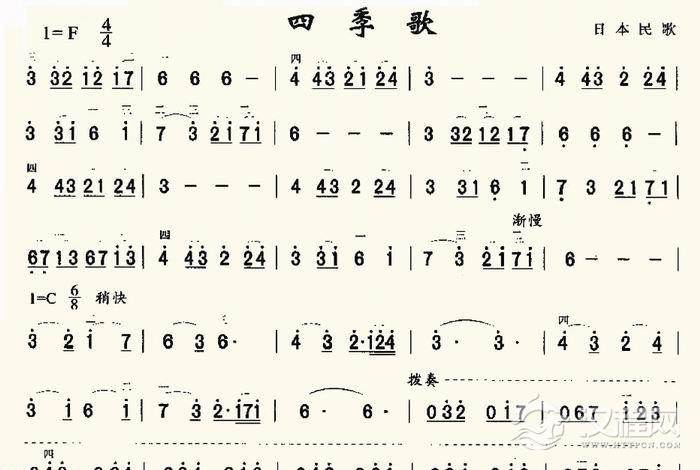 四季歌
1=F 4/4 日本民歌
三 四
3 32 12 17 | 6 6 6 − | 4 43 21 24 | 3 − − − | 4 43 2 24 |
3 31 6 1 | 7 3 21 71 | 6 − − − | 3 32 12 17 | 6 6 6 − |
四
4 43 21 24 | 3 − − − | 4 43 2 24 | 3 31 6 1 | 7 3 21 71 |
四 渐慢
67 13 67 13 | 4 43 2 24 | 3 31 6 1 | 7 3 21 71 | 6 − − − |
1=C 6/8 稍快
四
3 2 1 7 | 6 3 6· | 4 3 2·124 | 3· 3· | 4 3 2 4 |
拨奏
3 1 6 1 | 7 3 2·171 | 6· 6· | 032 017 | 067 123 |
四